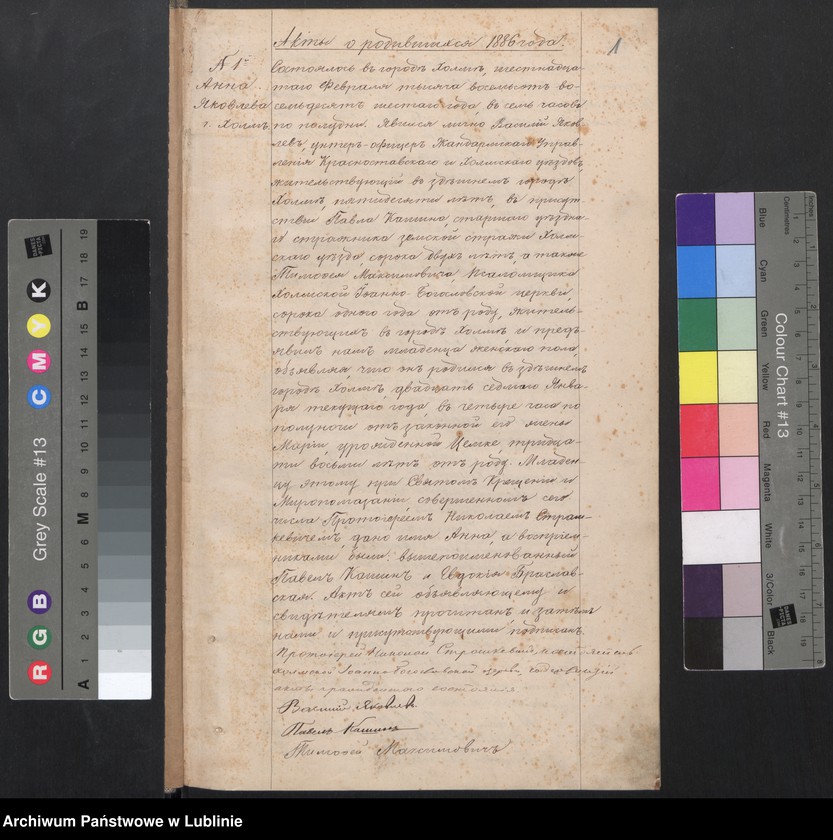 Акты о родившихся 1886 года.
1
N 1й
Анна
Яковлева
г. Холмъ
Состоялось въ городѣ Холмѣ, шестнадца-
таго Февраля тысяча восемьсотъ во-
семьдесятъ шестаго года въ семь часовъ
по полудни. Явился лично Василій Яков-
левъ, унтеръ-офицеръ Жандармскаго Управ-
ленія Красноставскаго и Холмскаго уѣздовъ,
жительствующій въ здѣшнемъ городѣ
Холмѣ, пятидесяти лѣтъ, въ присут-
ствіи Павла Кашина, старшаго уѣздна-
го стражника земской стражи Холм-
скаго уѣзда, сорока двухъ лѣтъ, а также
Тимофея Максимовича, Псаломщика
Холмской Іоанно-Богословской церкви,
сорока одного года отъ роду, житель-
ствующихъ въ городѣ Холмѣ и предъ-
явилъ намъ младенца женскаго пола,
объявляя, что онъ родился въ здѣшнемъ
городѣ Холмѣ, двадцать седьмого Янва-
ря текущаго года, въ четыре часа по
полуночи отъ законной его жены
Маріи, урожденной Цемке тридца-
ти восьми лѣтъ отъ роду. Младен-
цу этому при Святомъ Крещеніи и
Миропомазаніи совершенномъ сего
числа Протоіереемъ Николаемъ Страш-
кевичемъ, дано имя Анна, а воспріем-
никами были: вышепоименованный
Павелъ Кашинъ и Евдокія Браслав-
ская. Актъ сей объявляющему и
свидѣтелямъ прочитанъ и затѣмъ
нами и присутствующими подписанъ.
Протоіерей Николай Страшкевичъ,
Холмской Іоанно-Богословской церкви,
акты гражданскаго состоянія
Василій Яковлевъ
Павелъ Кашинъ
Тимофей Максимовичъ.
Grey Scale #13
R G B C M Y K
A 1 2 3 4 5 6 M 8 9 10 11 12 13 14 15 B 17 18 19
DANES PICTA
Colour Chart #13
Blue
Cyan
Green
Yellow
Red
Magenta
White
3/Color
Black
Inches
Centimetres
Archiwum Państwowe w Lublinie